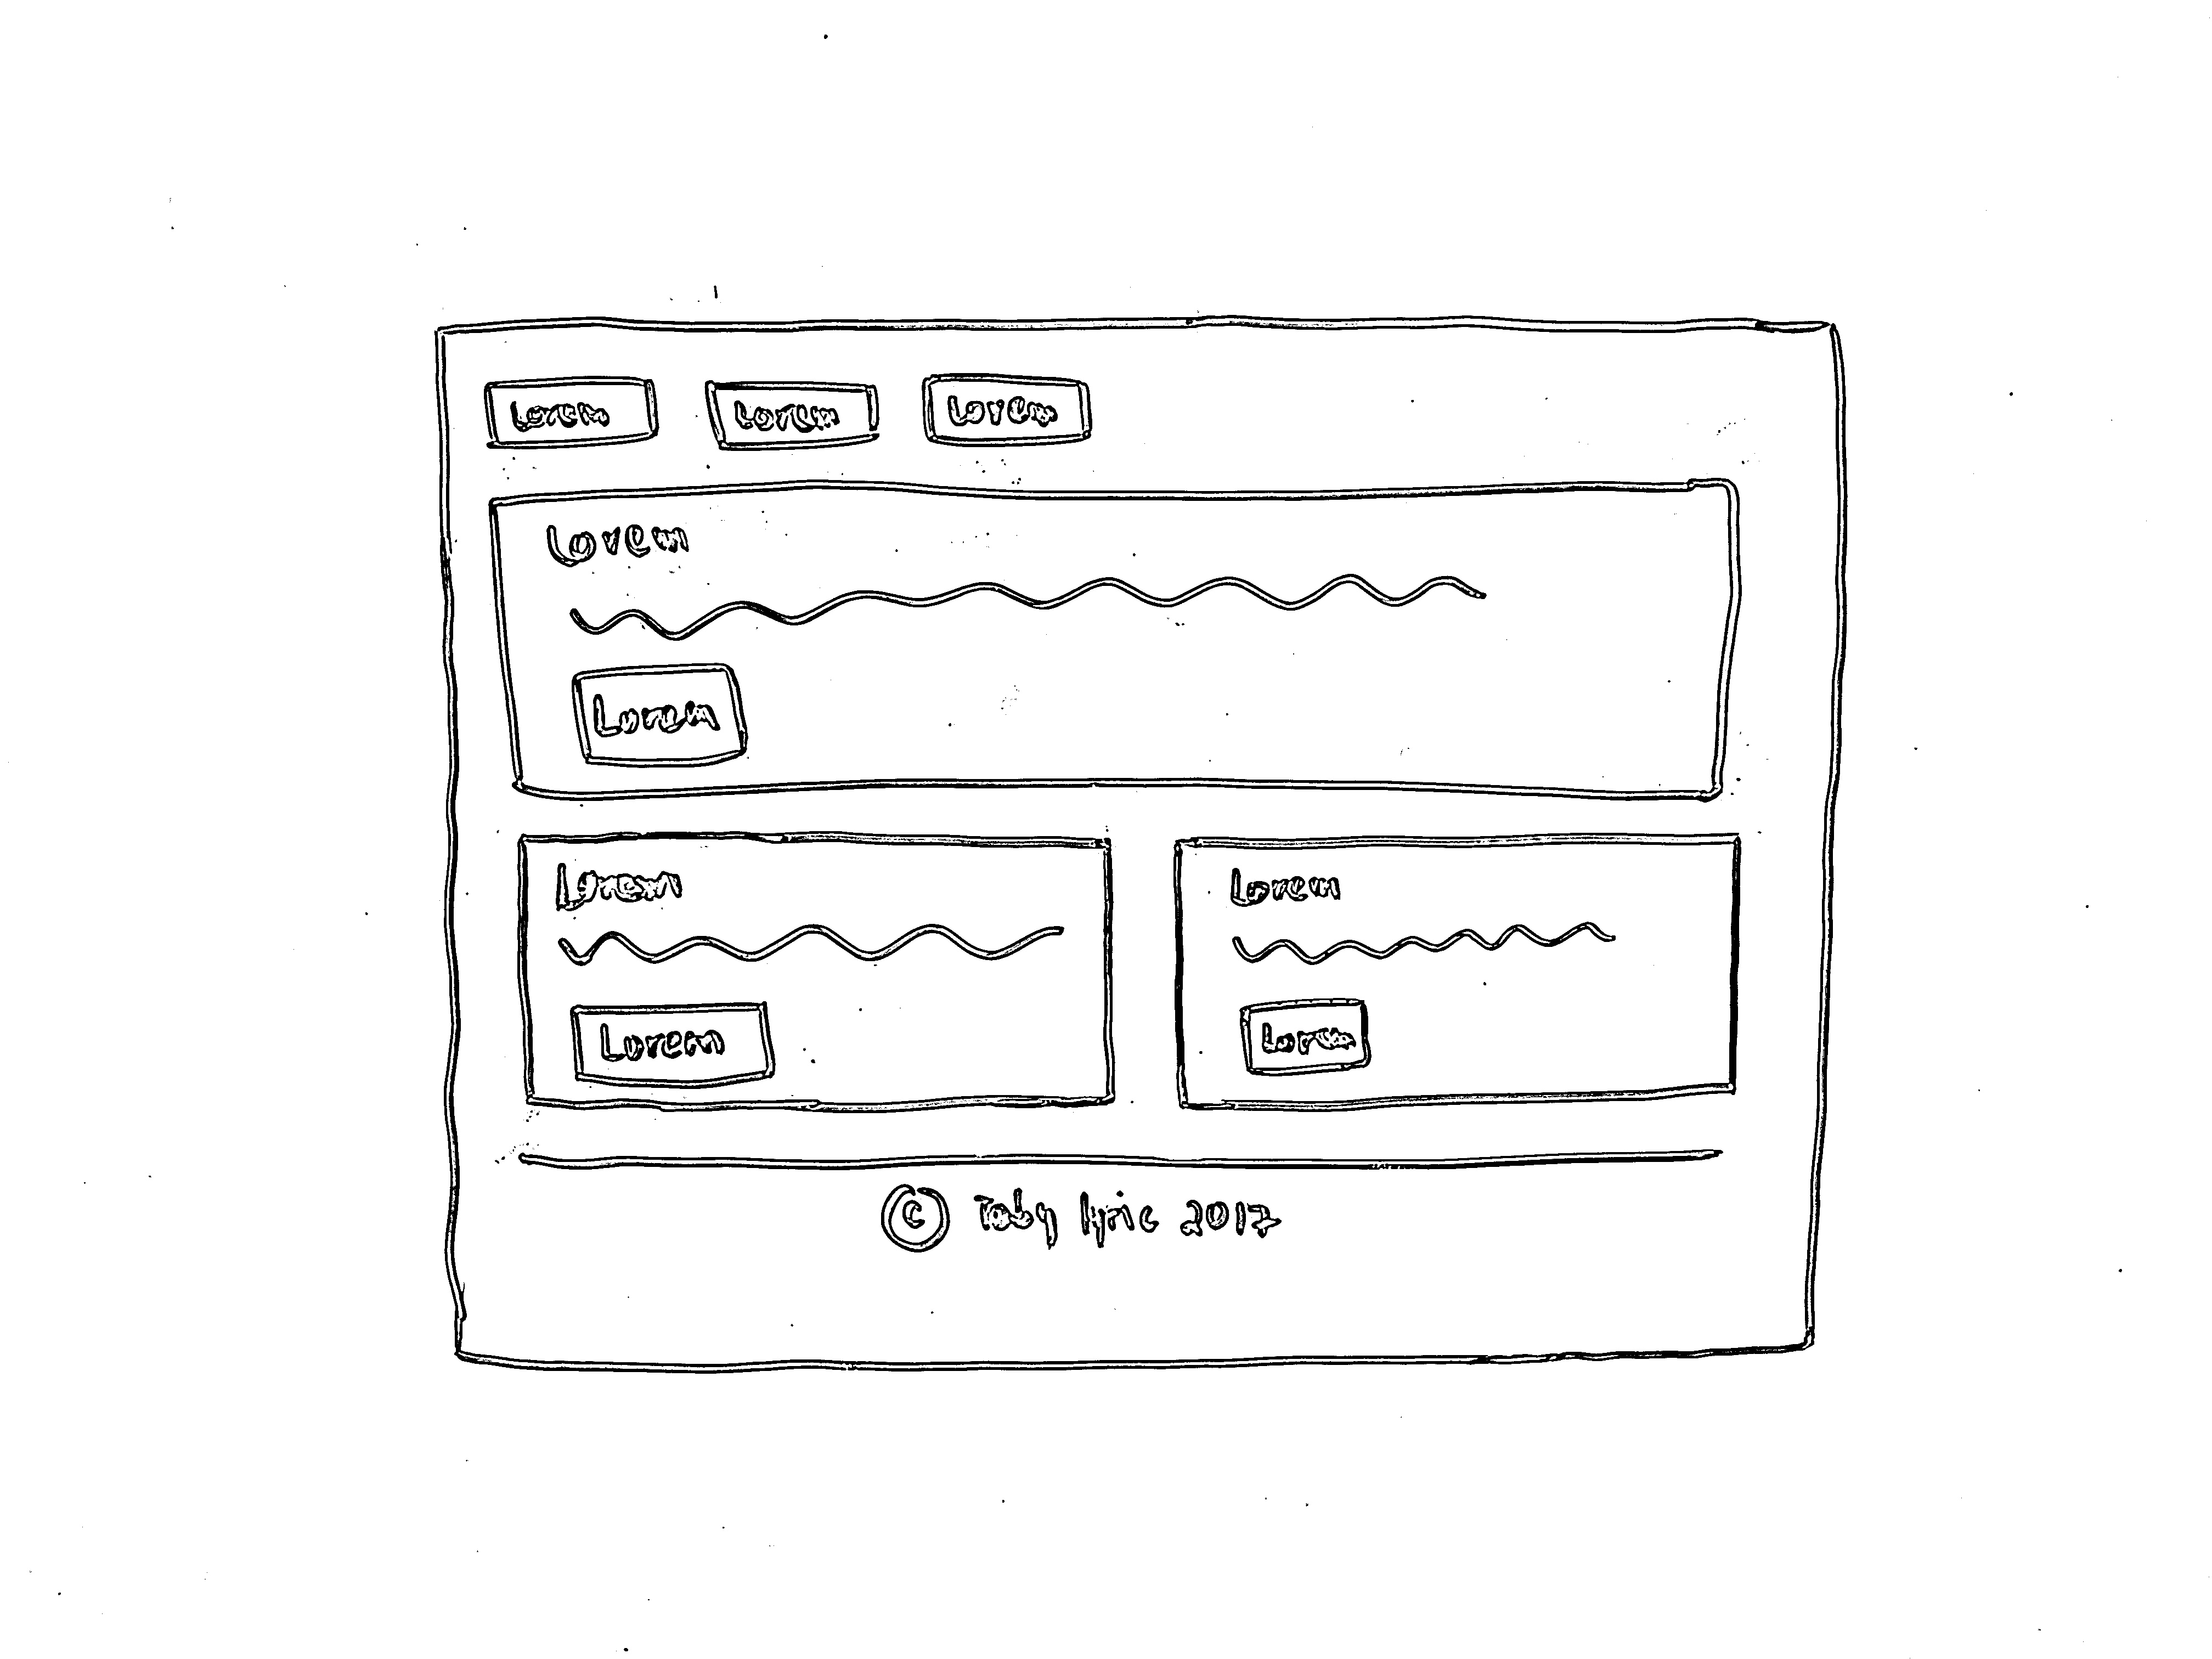 Lorem Lorem Lorem
Lorem
Lorem
Lorem Lorem
Lorem Lorem
© Toby lyric 2017